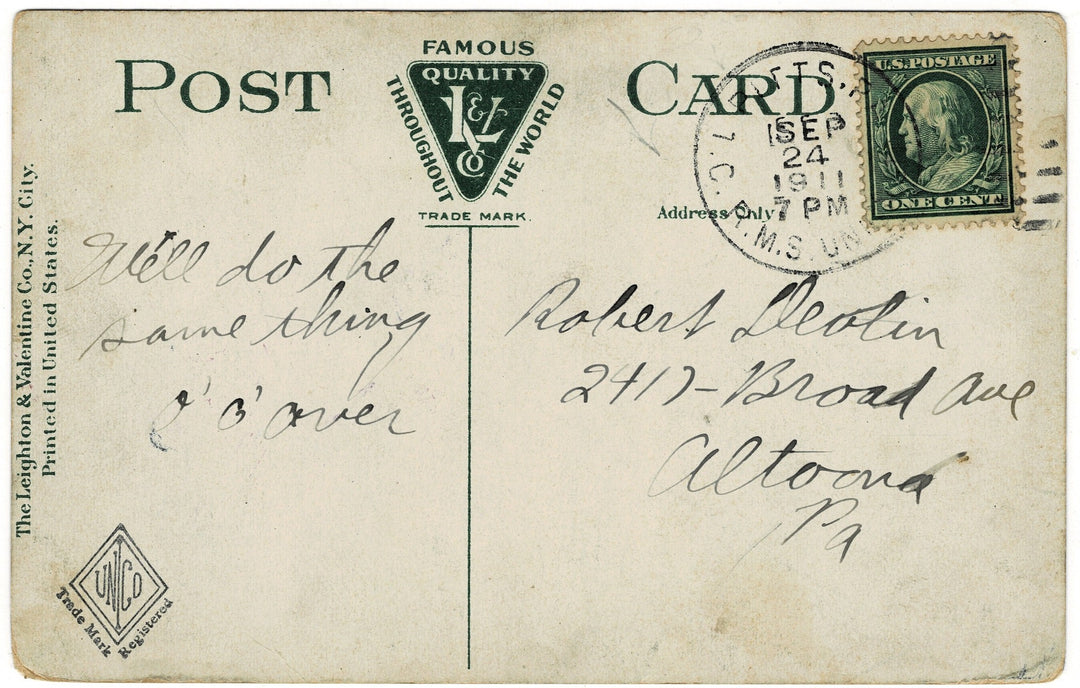 POST CARD
FAMOUS
QUALITY
THROUGHOUT THE WORLD
L&V
Co
TRADE MARK.
Address Only
U.S. POSTAGE
ONE CENT
PITTS.
SEP
24
1911
7 PM
T.C. R.M.S. UN
The Leighton & Valentine Co., N.Y. City.
Printed in United States.
We'll do the
same thing
over
Robert Devlin
2417- Broad Ave
Altoona
Pa
UNCO
Trade Mark Registered